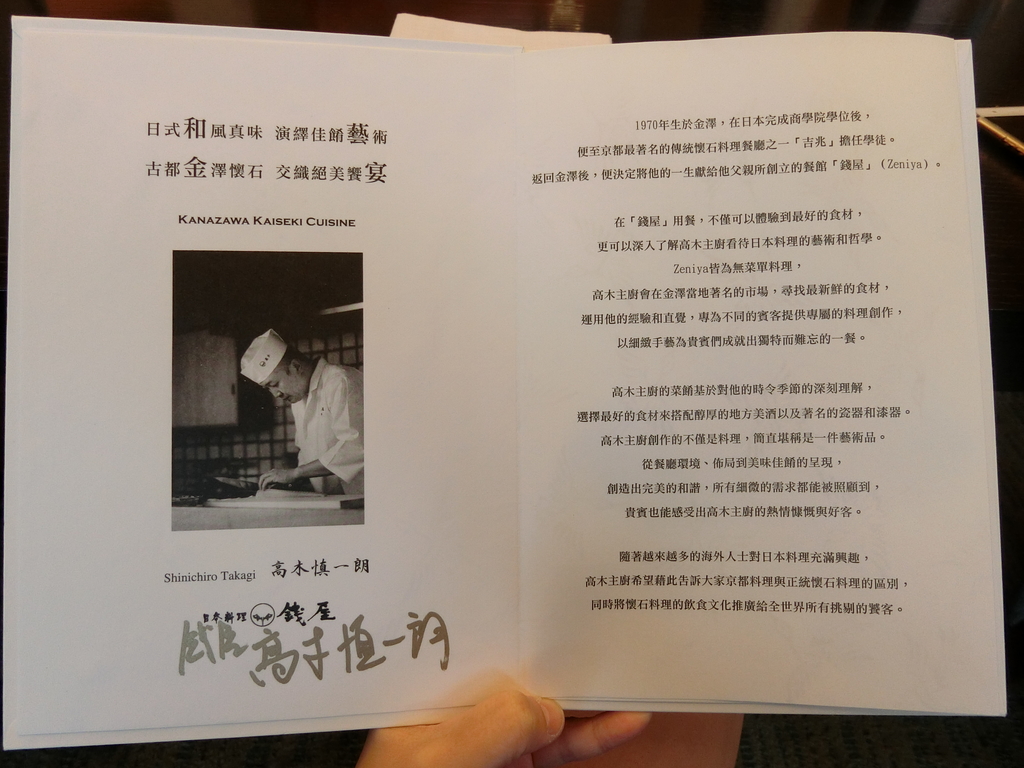 日式和風真味 演繹佳餚藝術
古都金澤懷石 交織絕美饗宴
KANAZAWA KAISEKI CUISINE
Shinichiro Takagi 高木慎一朗
日本料理 錢屋
錢屋 高木慎一朗
1970年生於金澤，在日本完成商學院學位後，
便至京都最著名的傳統懷石料理餐廳之一「吉兆」擔任學徒。
返回金澤後，便決定將他的一生獻給他父親所創立的餐館「錢屋」（Zeniya）。
在「錢屋」用餐，不僅可以體驗到最好的食材，
更可以深入了解高木主廚看待日本料理的藝術和哲學。
Zeniya皆為無菜單料理，
高木主廚會在金澤當地著名的市場，尋找最新鮮的食材，
運用他的經驗和直覺，專為不同的賓客提供專屬的料理創作，
以細緻手藝為貴賓們成就出獨特而難忘的一餐。
高木主廚的菜餚基於對他的時令季節的深刻理解，
選擇最好的食材來搭配醇厚的地方美酒以及著名的瓷器和漆器。
高木主廚創作的不僅是料理，簡直堪稱是一件藝術品。
從餐廳環境、佈局到美味佳餚的呈現，
創造出完美的和諧，所有細微的需求都能被照顧到，
貴賓也能感受出高木主廚的熱情慷慨與好客。
隨著越來越多的海外人士對日本料理充滿興趣，
高木主廚希望藉此告訴大家京都料理與正統懷石料理的區別，
同時將懷石料理的飲食文化推廣給全世界所有挑剔的饕客。